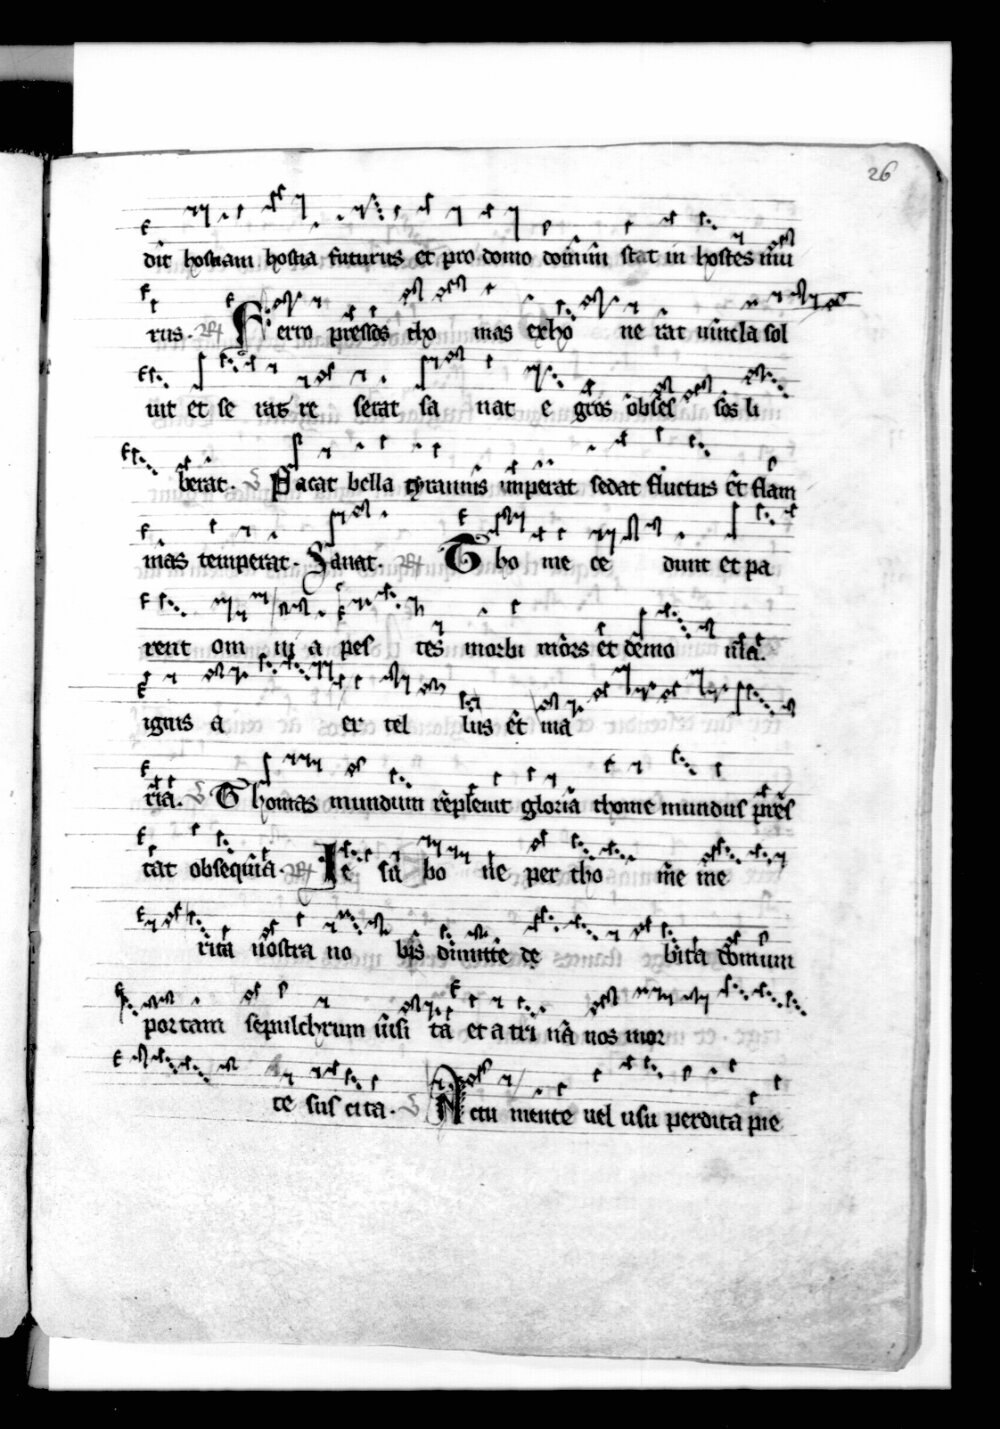 26
dit hostiam hostia futurus et pro domo domini stat in hostes mu
rus. R Ferro pressos tho mas exho ne rat vincla sol
uit et se rat re serat sa nat e gros obses sos li
berat. V Pacat bella tyrannis imperat sedat fluctus et flam
mas temperat. Sanat. R Tho me ce dunt et pa
rent om ni a pes tes morbi mors et demo nia.
ignis a er tel lus et ma
ria. V Thomas mundum repleuit gloria thome mundus pres
tat obsequia. R Ie su bo ne per tho me me
rita nostra no bis dimitte de bita domum
portam sepulchrum uisi ta et a tri na nos mor
te sus cita. V Actu mente uel usu perdita pie